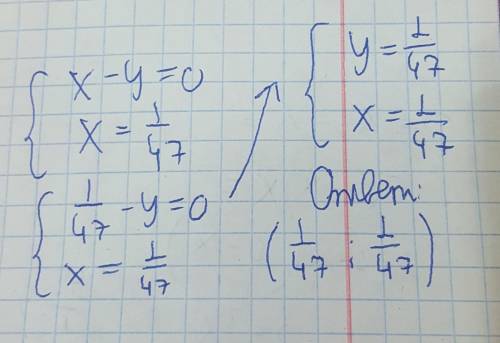 x - y = 0
x = 1/47
1/47 - y = 0
x = 1/47
y = 1/47
x = 1/47
Ответ:
(1/47 ; 1/47)